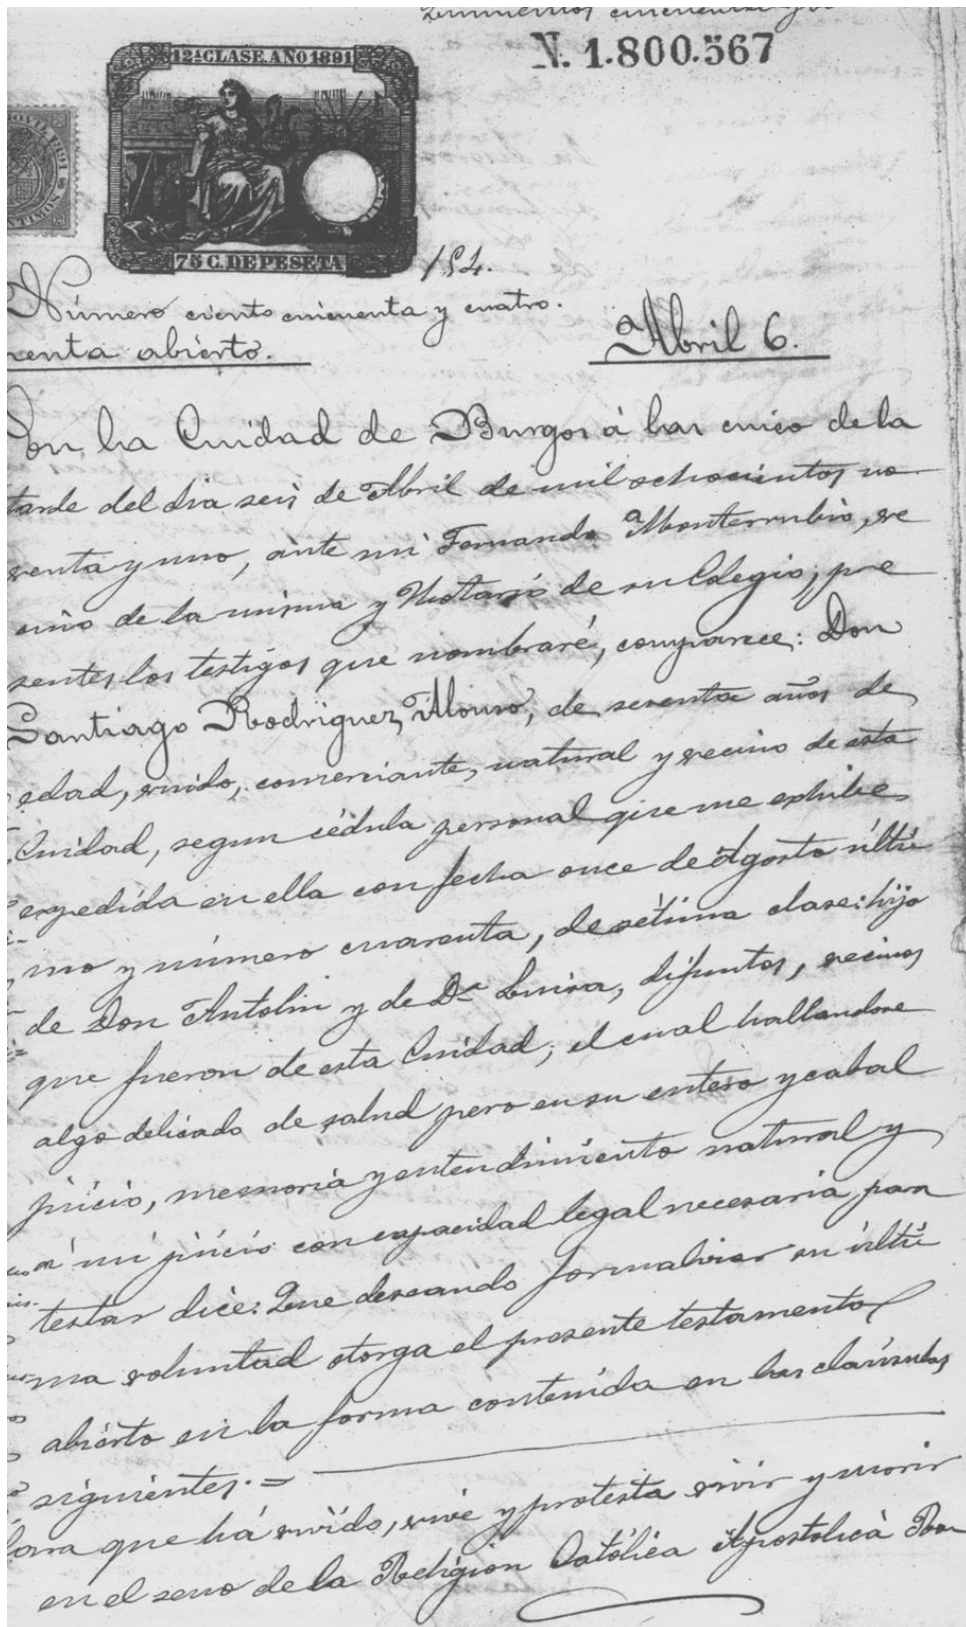 N. 1.800.567
12ª CLASE. AÑO 1891
75 C. DE PESETA
154.
Número ciento cincuenta y cuatro.
menta abierto.
Abril 6.
En la Ciudad de Burgos á las cinco de la
tarde del dia seis de Abril de mil ochocientos no
venta y uno, ante mi Fernando Monterrubio, ve
cino de la misma y Notario de su Colegio, pre
sentes los testigos que nombraré, comparece: Don
Santiago Rodriguez Alonso, de sesenta años de
edad, viudo, comerciante, natural y vecino de esta
Ciudad, segun cédula personal que me exhibe
expedida en ella con fecha once de Agosto últi
mo y número cuarenta, de sétima clase: hijo
de Don Antolin y de Dª Luisa, difuntos, vecinos
que fueron de esta Ciudad; el cual hallandose
algo delicado de salud pero en su entero y cabal
juicio, memoria y entendimiento natural y
á mi juicio con capacidad legal necesaria para
testar dice: Que deseando formalizar su últi
ma voluntad otorga el presente testamento
abierto en la forma contenida en las cláusulas
siguientes. =
lara que há vivido, vive y protesta vivir y morir
en el seno de la Religion Católica Apostolica Rom